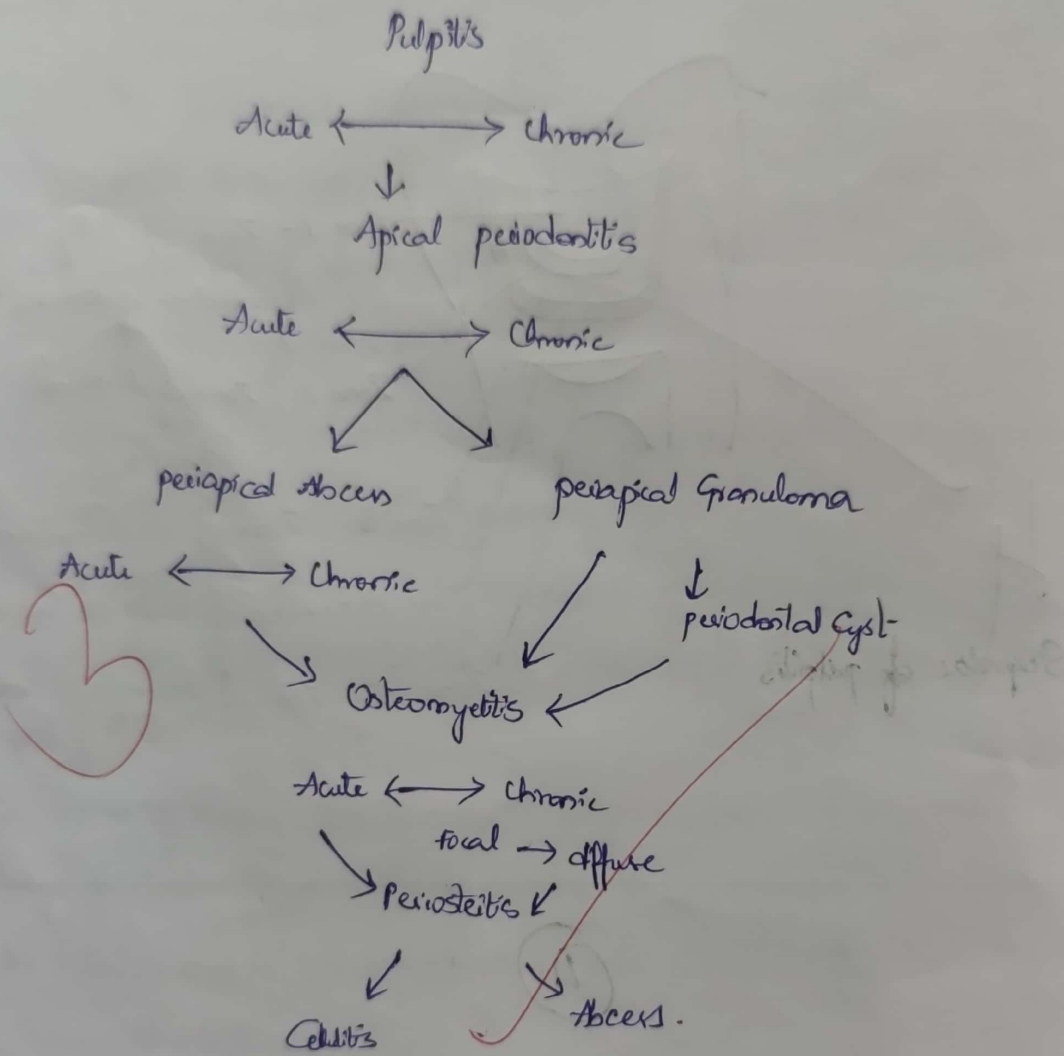 Pulpitis
Acute ↔ Chronic
↓
Apical periodontitis
Acute ↔ Chronic
periapical Abcess periapical Granuloma
Acute ↔ Chronic
↓
periodontal Cyst
Osteomyelitis
Acute ↔ Chronic
focal → diffuse
Periosteitis
Cellulitis Abcess.
3